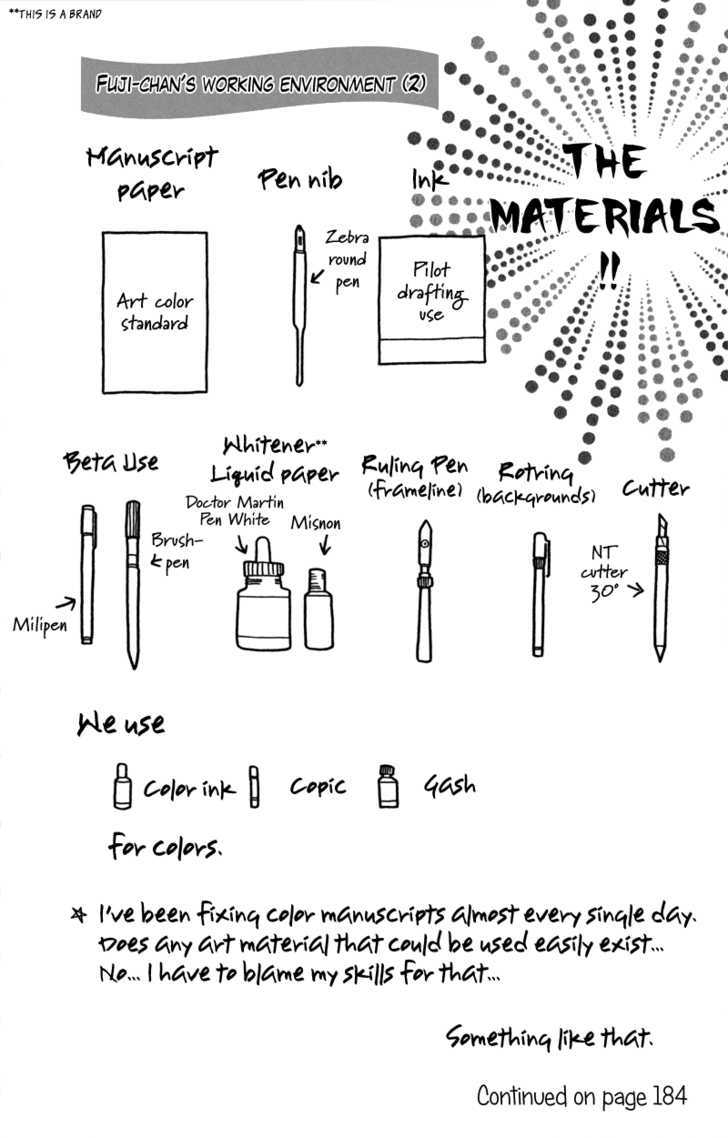 **THIS IS A BRAND
FUJI-CHAN'S WORKING ENVIRONMENT (2)
THE
MATERIALS
!!
Manuscript
paper
Art color
standard
Pen nib
Zebra
round
pen
Ink
Pilot
drafting
use
Beta Use
Brush-
pen
Milipen
Whitener**
Liquid paper
Doctor Martin
Pen White
Misnon
Ruling Pen
(frameline)
Rotring
(backgrounds)
Cutter
NT
cutter
30°
We use
Color ink
Copic
Gash
for colors.
☆ I've been fixing color manuscripts almost every single day.
Does any art material that could be used easily exist...
No... I have to blame my skills for that...
Something like that.
Continued on page 184